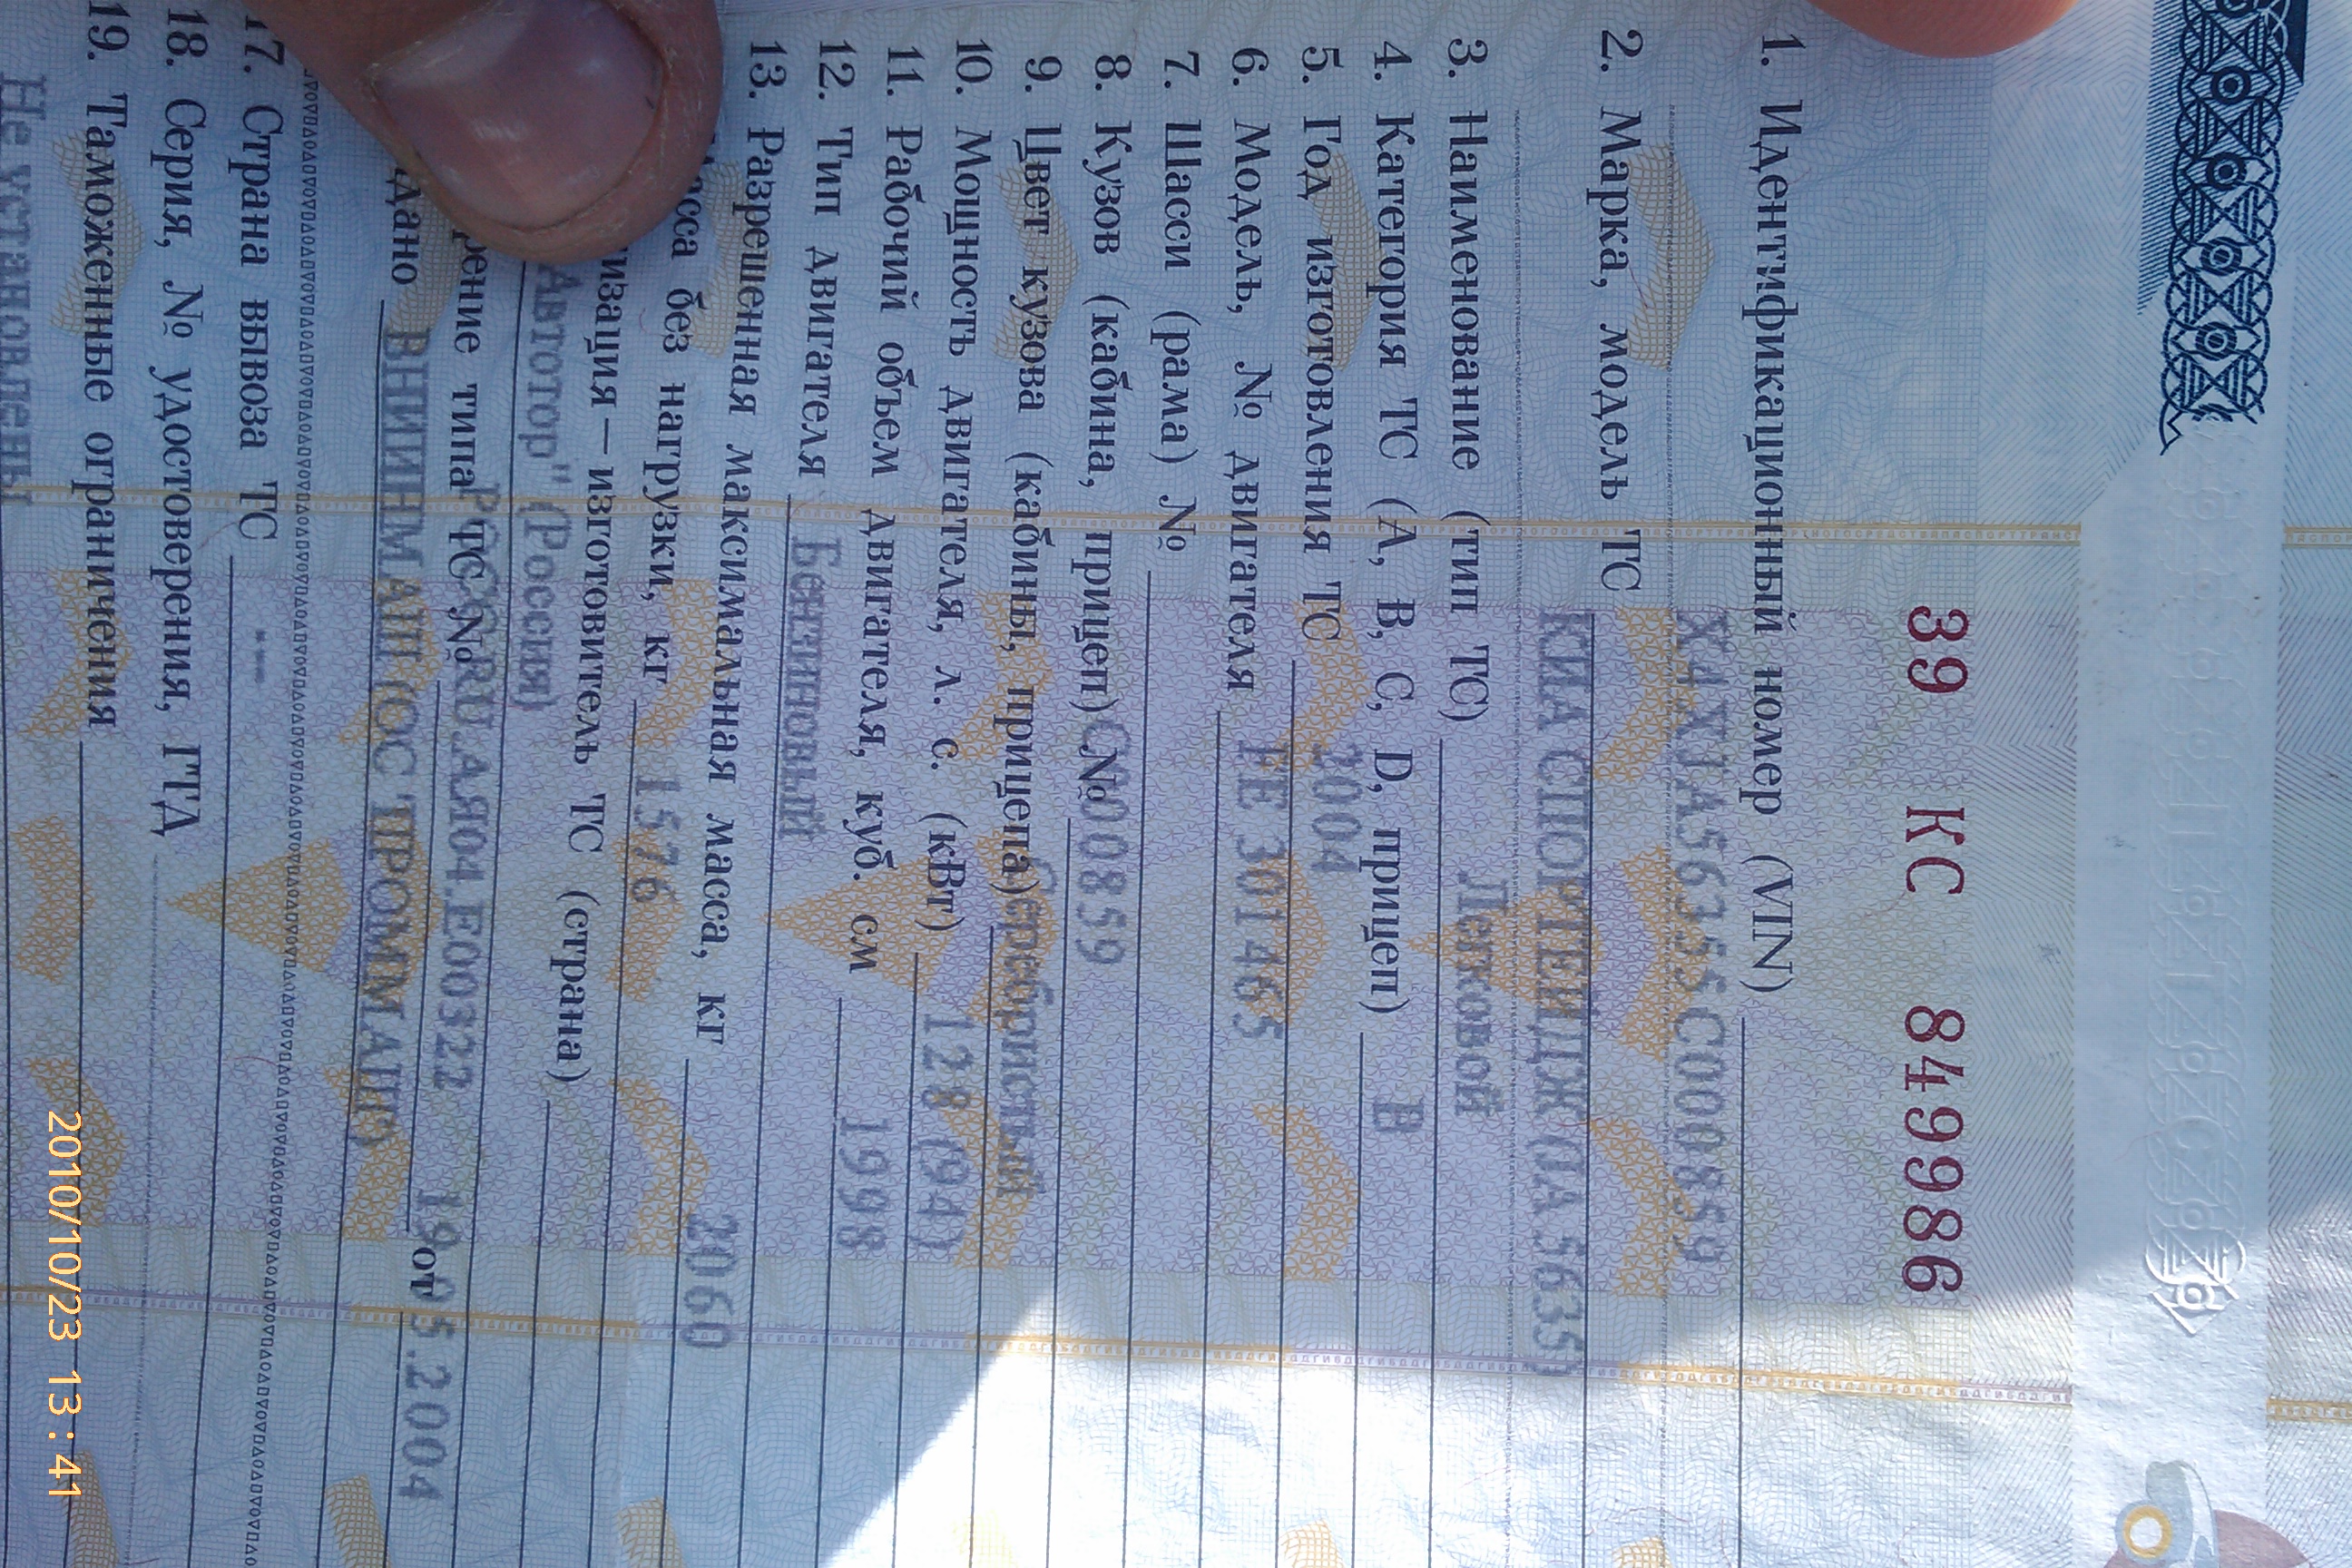 39 КС 849986
1. Идентификационный номер (VIN)
X4XJA56355C000859
2. Марка, модель ТС
КИА СПОРТЕЙДЖ (JA 5635)
3. Наименование (тип ТС) Легковой
4. Категория ТС (A, B, C, D, прицеп) B
5. Год изготовления ТС 2004
6. Модель, № двигателя FE 301465
7. Шасси (рама) №
8. Кузов (кабина, прицеп) № C000859
9. Цвет кузова (кабины, прицепа) Серебристый
10. Мощность двигателя, л. с. (кВт) 128 (94)
11. Рабочий объем двигателя, куб. см 1998
12. Тип двигателя Бензиновый
13. Разрешенная максимальная масса, кг 2060
без нагрузки, кг 1576
изготовитель ТС (страна)
Автотор" (Россия)
типа ТС № РОСС RU.АЯ04.Е00322 от 19.05.2004
ВНИИНМАШ (ОС ПРОММАШ)
17. Страна вывоза ТС
18. Серия, № удостоверения, ГТД
19. Таможенные ограничения
Не установлены
2010/10/23 13:41